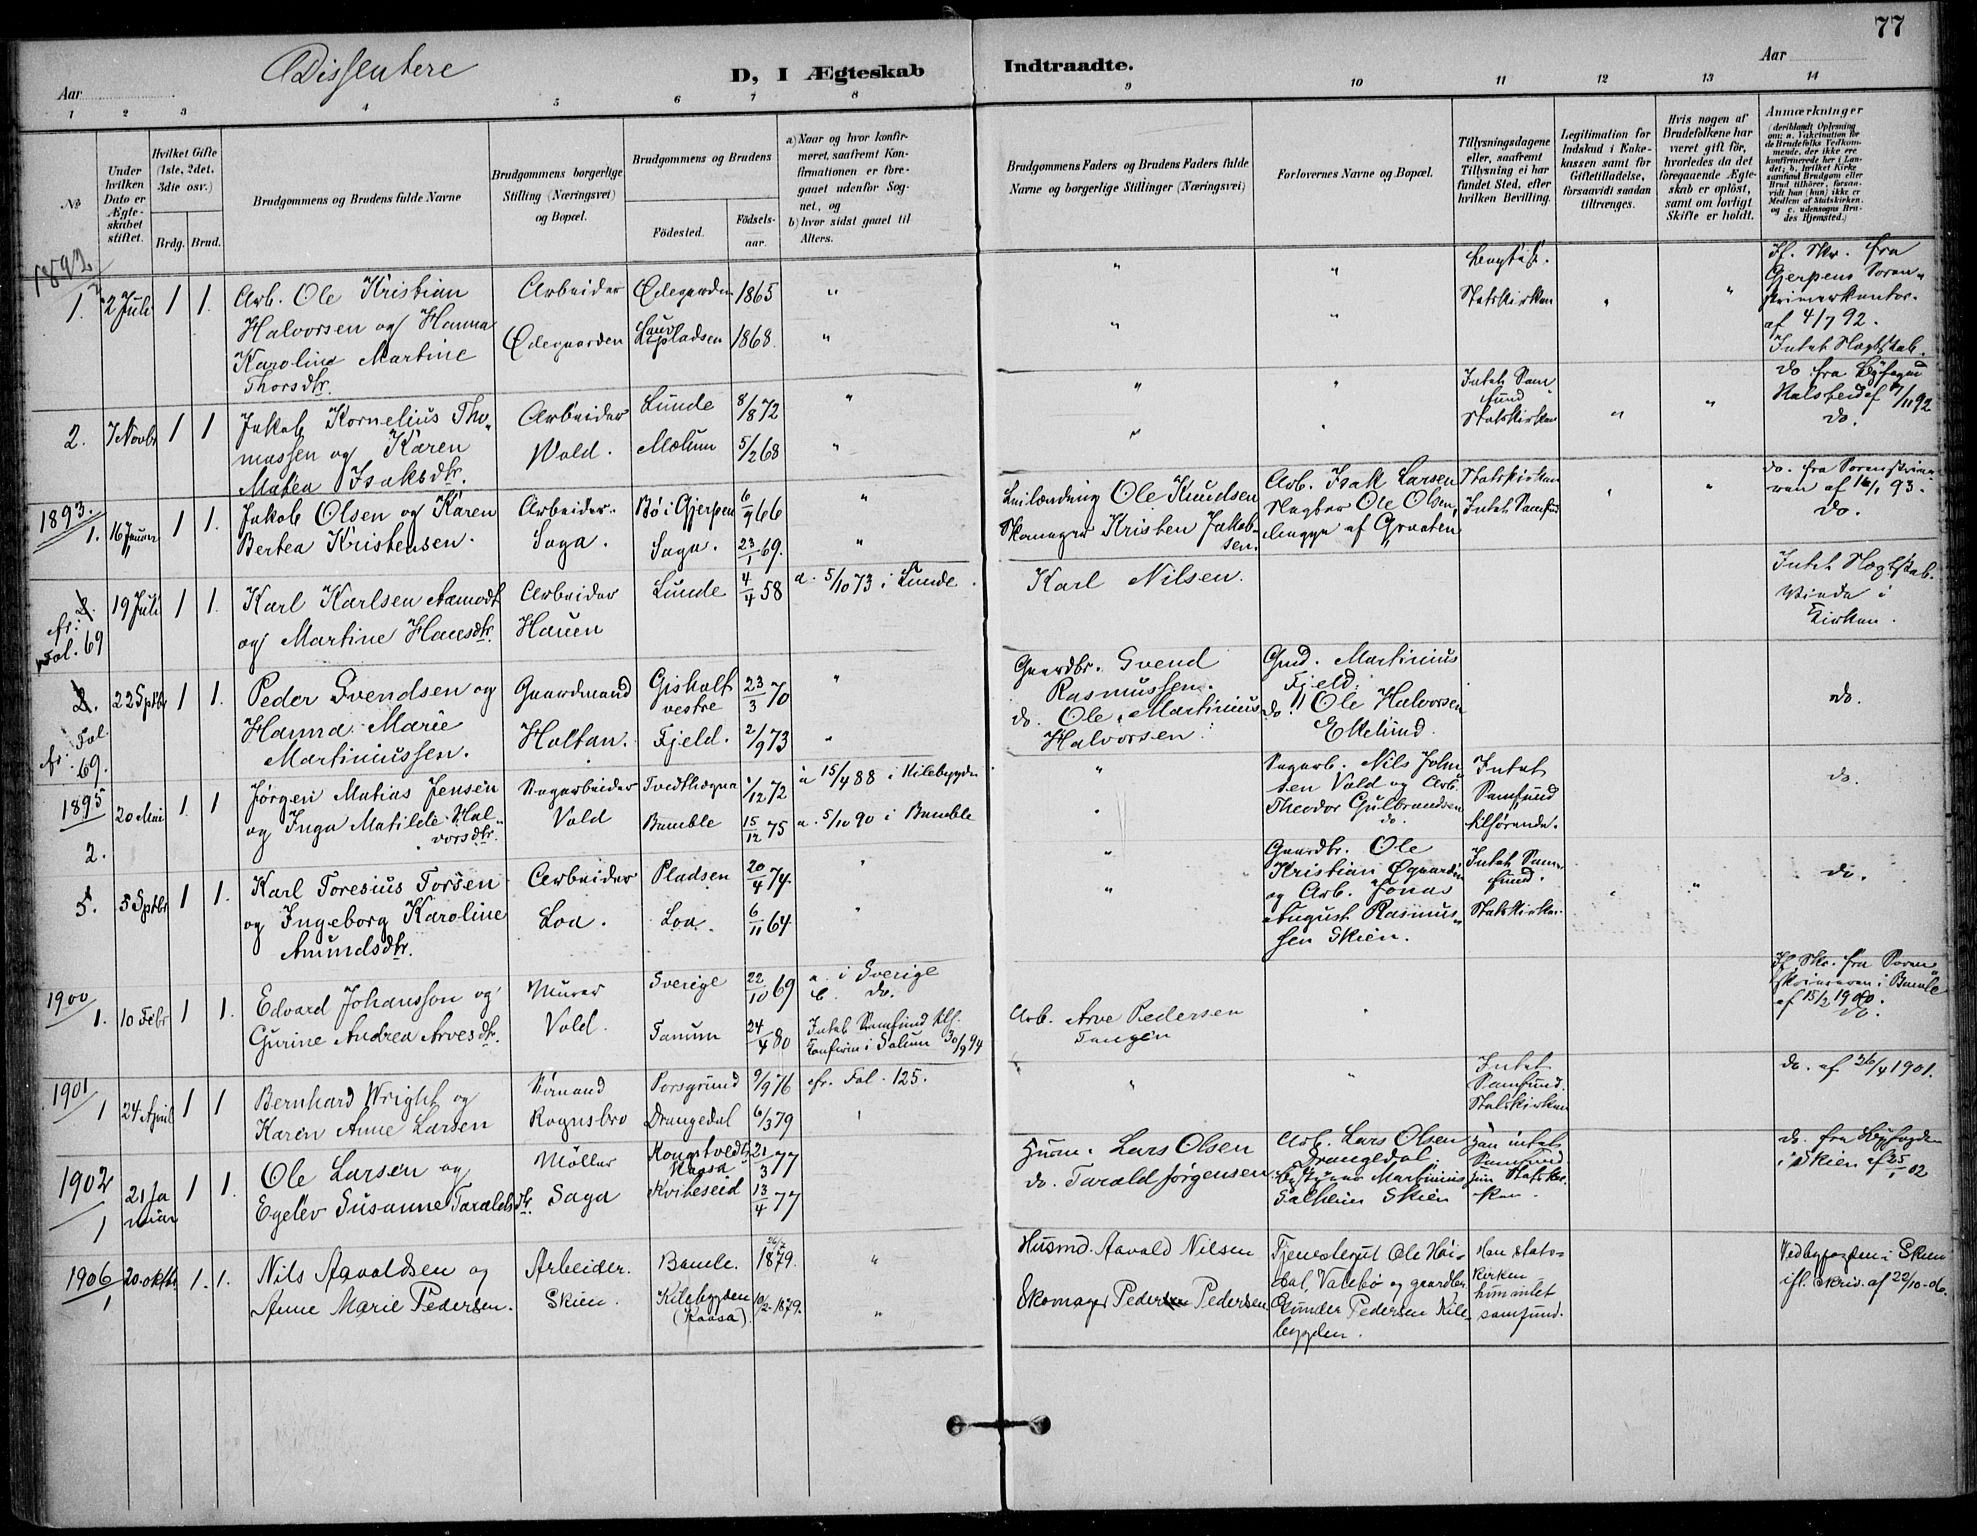 77
Dissentere
D, I Ægteskab Indtraadte.
Aar
Aar
1 2 3 4 5 6 7 8 9 10 11 12 13 14
No
Under hvilken Dato er Ægteskabet stiftet.
Hvilket Gifte (1ste, 2det, 3die osv.)
Brdg. Brud.
Brudgommens og Brudens fulde Navne
Brudgommens borgerlige Stilling (Næringsvei) og Bopæl.
Brudgommens og Brudens
Fødested.
Fødselsaar.
a) Naar og hvor konfirmeret, saafremt Konfirmationen er foregaaet udenfor Sognet, og
b) hvor sidst gaaet til Alters.
Brudgommens Faders og Brudens Faders fulde Navne og borgerlige Stillinger (Næringsvei)
Forlovernes Navne og Bopæl.
Tillysningsdagene eller, saafremt Tillysning ei har fundet Sted, efter hvilken Bevilling.
Legitimation for Indskud i Enkekassen samt for Giftetilladelse, forsaavidt saadan tiltrænges.
Hvis nogen af Brudefolkene har været gift før, hvorledes da det foregaaende Ægteskab er opløst, samt om lovligt Skifte er holdt.
Anmærkninger
(deriblandt Oplysning om: a. Vakcination for de Brudefolks Vedkommende, der ikke ere konfirmerede her i Landet; b. hvilket Kirkesamfund Brudgom eller Brud tilhører, forsaavidt han (hun) ikke er Medlem af Statskirken, og c. udensogns Brudes Hjemsted.)
1892
1. 2 Juli 1 1. Arb. Ole Kristian Arbeider Ødegaarden 1865 " " "
Halvorsen og Hanna Ødegaarden 1868. " " " Statskirken
Karoline Martine
Thorsdtr.
If. Skr. fra
Gjerpens Soren-
skriverkontor
af 4/7 92.
Intet Slægtskab.
2. 7 Novbr 1 1 Jakob Kornelius Tho- Arbeider Lunde 8/8 72 " " " Intet Sam-
fund
massen og Karen Vold. Mælum 5/2 68 " Statskirken
Matea Isaksdtr.
do. fra Byfoged
af 7/11 92
do.
1893.
1. 16 Januar 1 1. Jakob Olsen og Karen Arbeider. Bø i Gjerpen 6/9 66 "
Bertea Kristensen. Saga. Saga. 23/1 69. "
Leilænding Ole Knudsen
Skomager Kristen Jakob-
sen.
Arb. Isak Larsen
Slagter Ole Olsen,
begge af Graaten
Statskirken
Intet Samfund
do. fra Sorenskrive-
ren af 16/1 93.
do.
2.
cfr.
Fol. 69
19 Juli 1 1. Karl Karlsen Aamodt Arbeider Lunde 4/4 58 a. 5/10 73 i Lunde.
og Martine Hansdtr. Hauen
Karl Nilsen.
Intet Slægtskab.
Viede i
Kirken.
2.
cfr. Fol.
69.
22 Sptbr 1 1. Peder Svendsen og Gaardmand Gisholt
vestre 23/3 70 "
Hanna Marie Holtan. Fjeld. 2/9 73 "
Martiniussen.
Gaardbr. Svend
Rasmussen.
do. Ole Martinius
Halvorsen.
Gmd. Martinius
Fjeld.
do. Ole Halvorsen
Ekelund.
do.
1895
2.
20 Mai 1. 1 Jørgen Matias Jensen Sagarbeider 1/12 72 a 15/4 88 i Kilebygden
og Inga Matilde Hal- Vold Bamble 15/12 75 a. 5/10 90 i Bamble
vorsdtr.
"
"
Sagarb. Nils John-
sen Vold og Arb.
Theodor Gulbrandsen
do.
Intet
Samfund
tilhørende.
do.
5. 5 Sptbr 1 1. Karl Toresius Torsen Arbeider Pladsen 20/4 74 "
og Ingeborg Karoline Loa. Loa. 6/11 64 "
Amundsdtr.
"
"
Gaardbr. Ole
Kristian Øgaarden
og Arb. Jonas
August Rasmus-
sen Skien.
Intet Sam-
fund.
Statskirken
do.
1900
1. 10 Febr 1 1. Edvard Johansson og Murer Sverige 22/10 69 a. i Sverige
b. do.
Gurine Andrea Arvesdtr. Vold. Tanum 24/4 80 Intet Samfund
Konfirm i Solum 30/9 94
Arb. Arve Pedersen
Tangen
If. Skr. fra Soren-
skriveren i Bamle
af 15/2 1900.
do.
1901
1 24 April 1 1 Bernhard Wright og Sømand Porsgrund 9/9 76 cfr. Fol. 125.
Karen Anne Larsen Rognsbro Drangedal 6/3 79
"
"
Intet
Samfund.
Statskirken
do. af 26/4 1901.
1902
1
21 Ja
nuar 1 1. Ole Larsen og Møller Kongstvedt
Kaasa 21/3 77
Egelev Susanne Taraldsdtr. Saga Kviteseid 13/4 77
Husm. Lars Olsen
do. Tarald Jørgensen
Arb. Lars Olsen
Drangedal.
Bestyrer Martinius
Solheim Skien
han intet
Samfund
hun Statskir-
ken.
do. fra Byfogden
i Skien af 25/1 02
1906
1
20. oktbr 1. 1. Nils Aavaldsen og Arbeider. Bamle. 26/2 1879. "
Anne Marie Pedersen. Skien. Kilebygden
(Kaasa). 10/2-1879. "
Husmd. Aavald Nilsen
Skomager Pedersen Pedersen
Tjenestegut Ole Hei-
dal, Valebø og gaardbr.
Gunder Pedersen Kile-
bygden.
Han stats-
kirken
hun intet
samfund.
Ved byfogden i Skien
ifl. skriv. af 22/10-06.